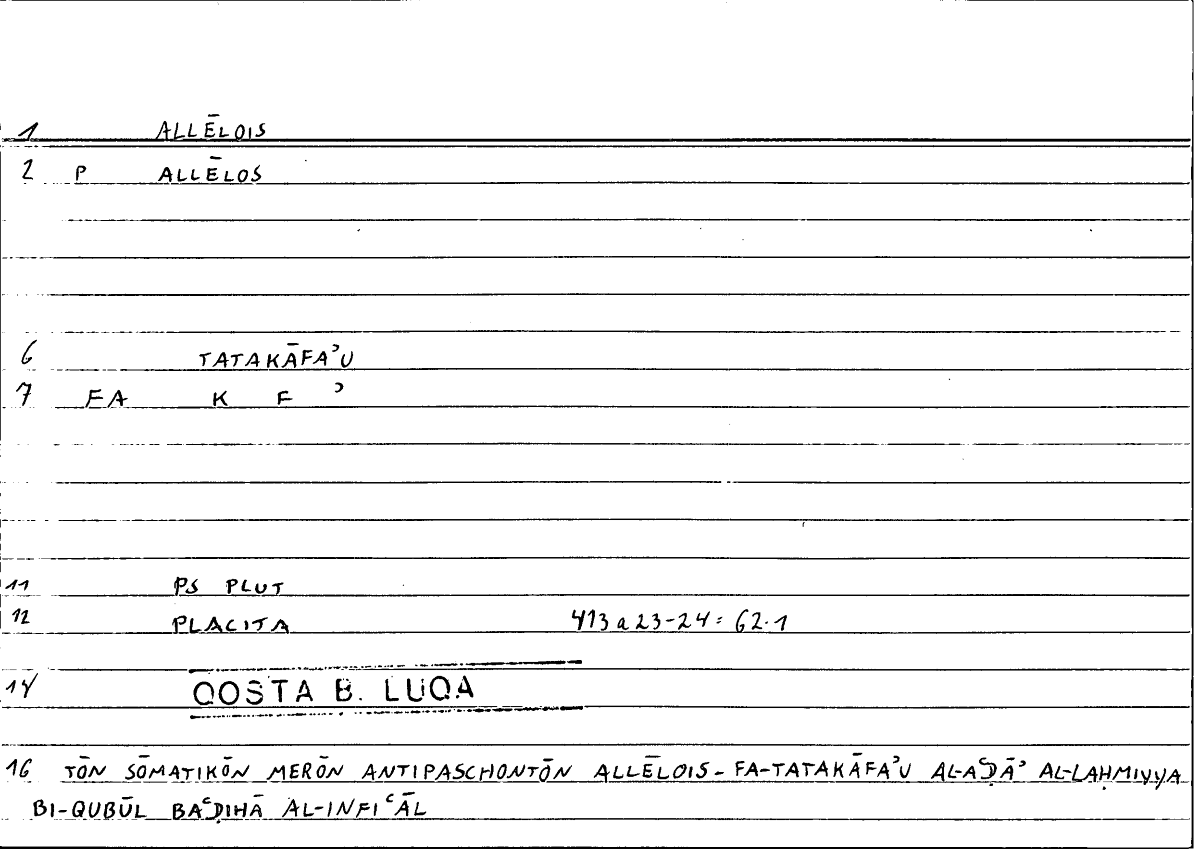 1 ALLĒLOIS
2 P ALLĒLOS
6 TATAKĀFAʾU
7 FA K F ʾ
11 PS PLUT
12 PLACITA 413 a 23-24 = 62.1
14 QOSTA B. LUQA
16 TŌN SŌMATIKŌN MERŌN ANTIPASCHONTŌN ALLĒLOIS - FA-TATAKĀFAʾU AL-AʿḌĀʾ AL-LAḤMIYYA
BI-QUBŪL BAʿḌIHĀ AL-INFIʿĀL